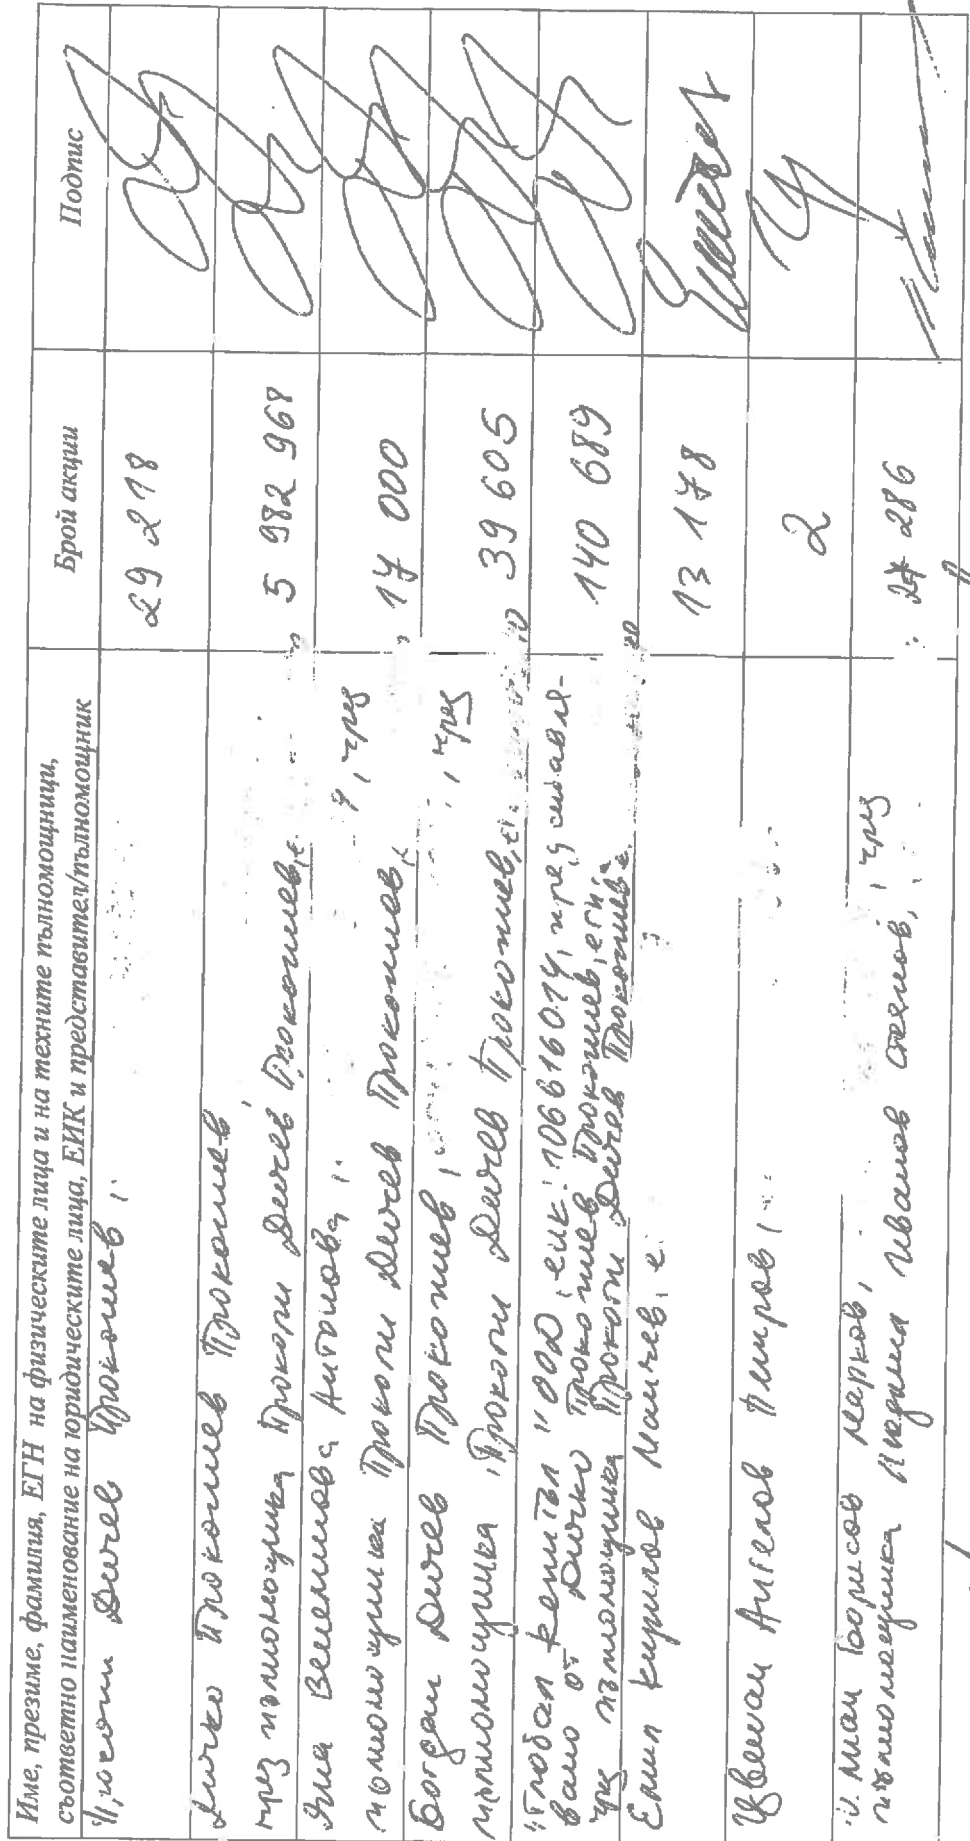 Име, презиме, фамилия, ЕГН на физическите лица и на техните пълномощници,
съответно наименование на юридическите лица, ЕИК и представител/пълномощник
Брой акции
Подпис
Дичев Прокопиев,
29 218
Дичко Прокопиев Прокопиев,
чрез пълномощника Прокопи Дичев Прокопиев,
5 982 968
Яна Венелинова Антонова, чрез
пълномощника Прокопи Дичев Прокопиев,
17 000
Богдан Дичев Прокопиев, чрез
пълномощника Прокопи Дичев Прокопиев,
39 605
"Глобал Кепитъл" ООД, ЕИК: 106616014, представля-
вано от Дичко Прокопиев Прокопиев, ЕГН:
чрез пълномощника Прокопи Дичев Прокопиев
140 689
Емил Кирилов Манчев,
13 178
Цветан Ангелов Пииров,
2
Борисов Марков, чрез
пълномощника Иванов Стоянов,
286